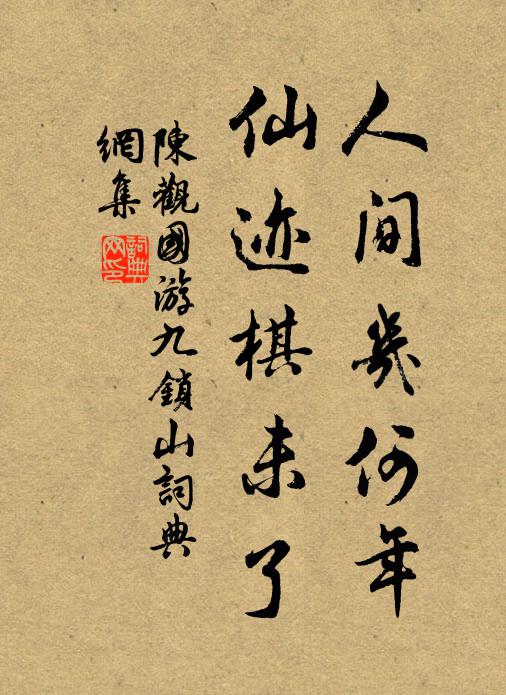 人间几何年
仙迹棋未了
陳觀國游九鎖山詞典
網集
詞典网印